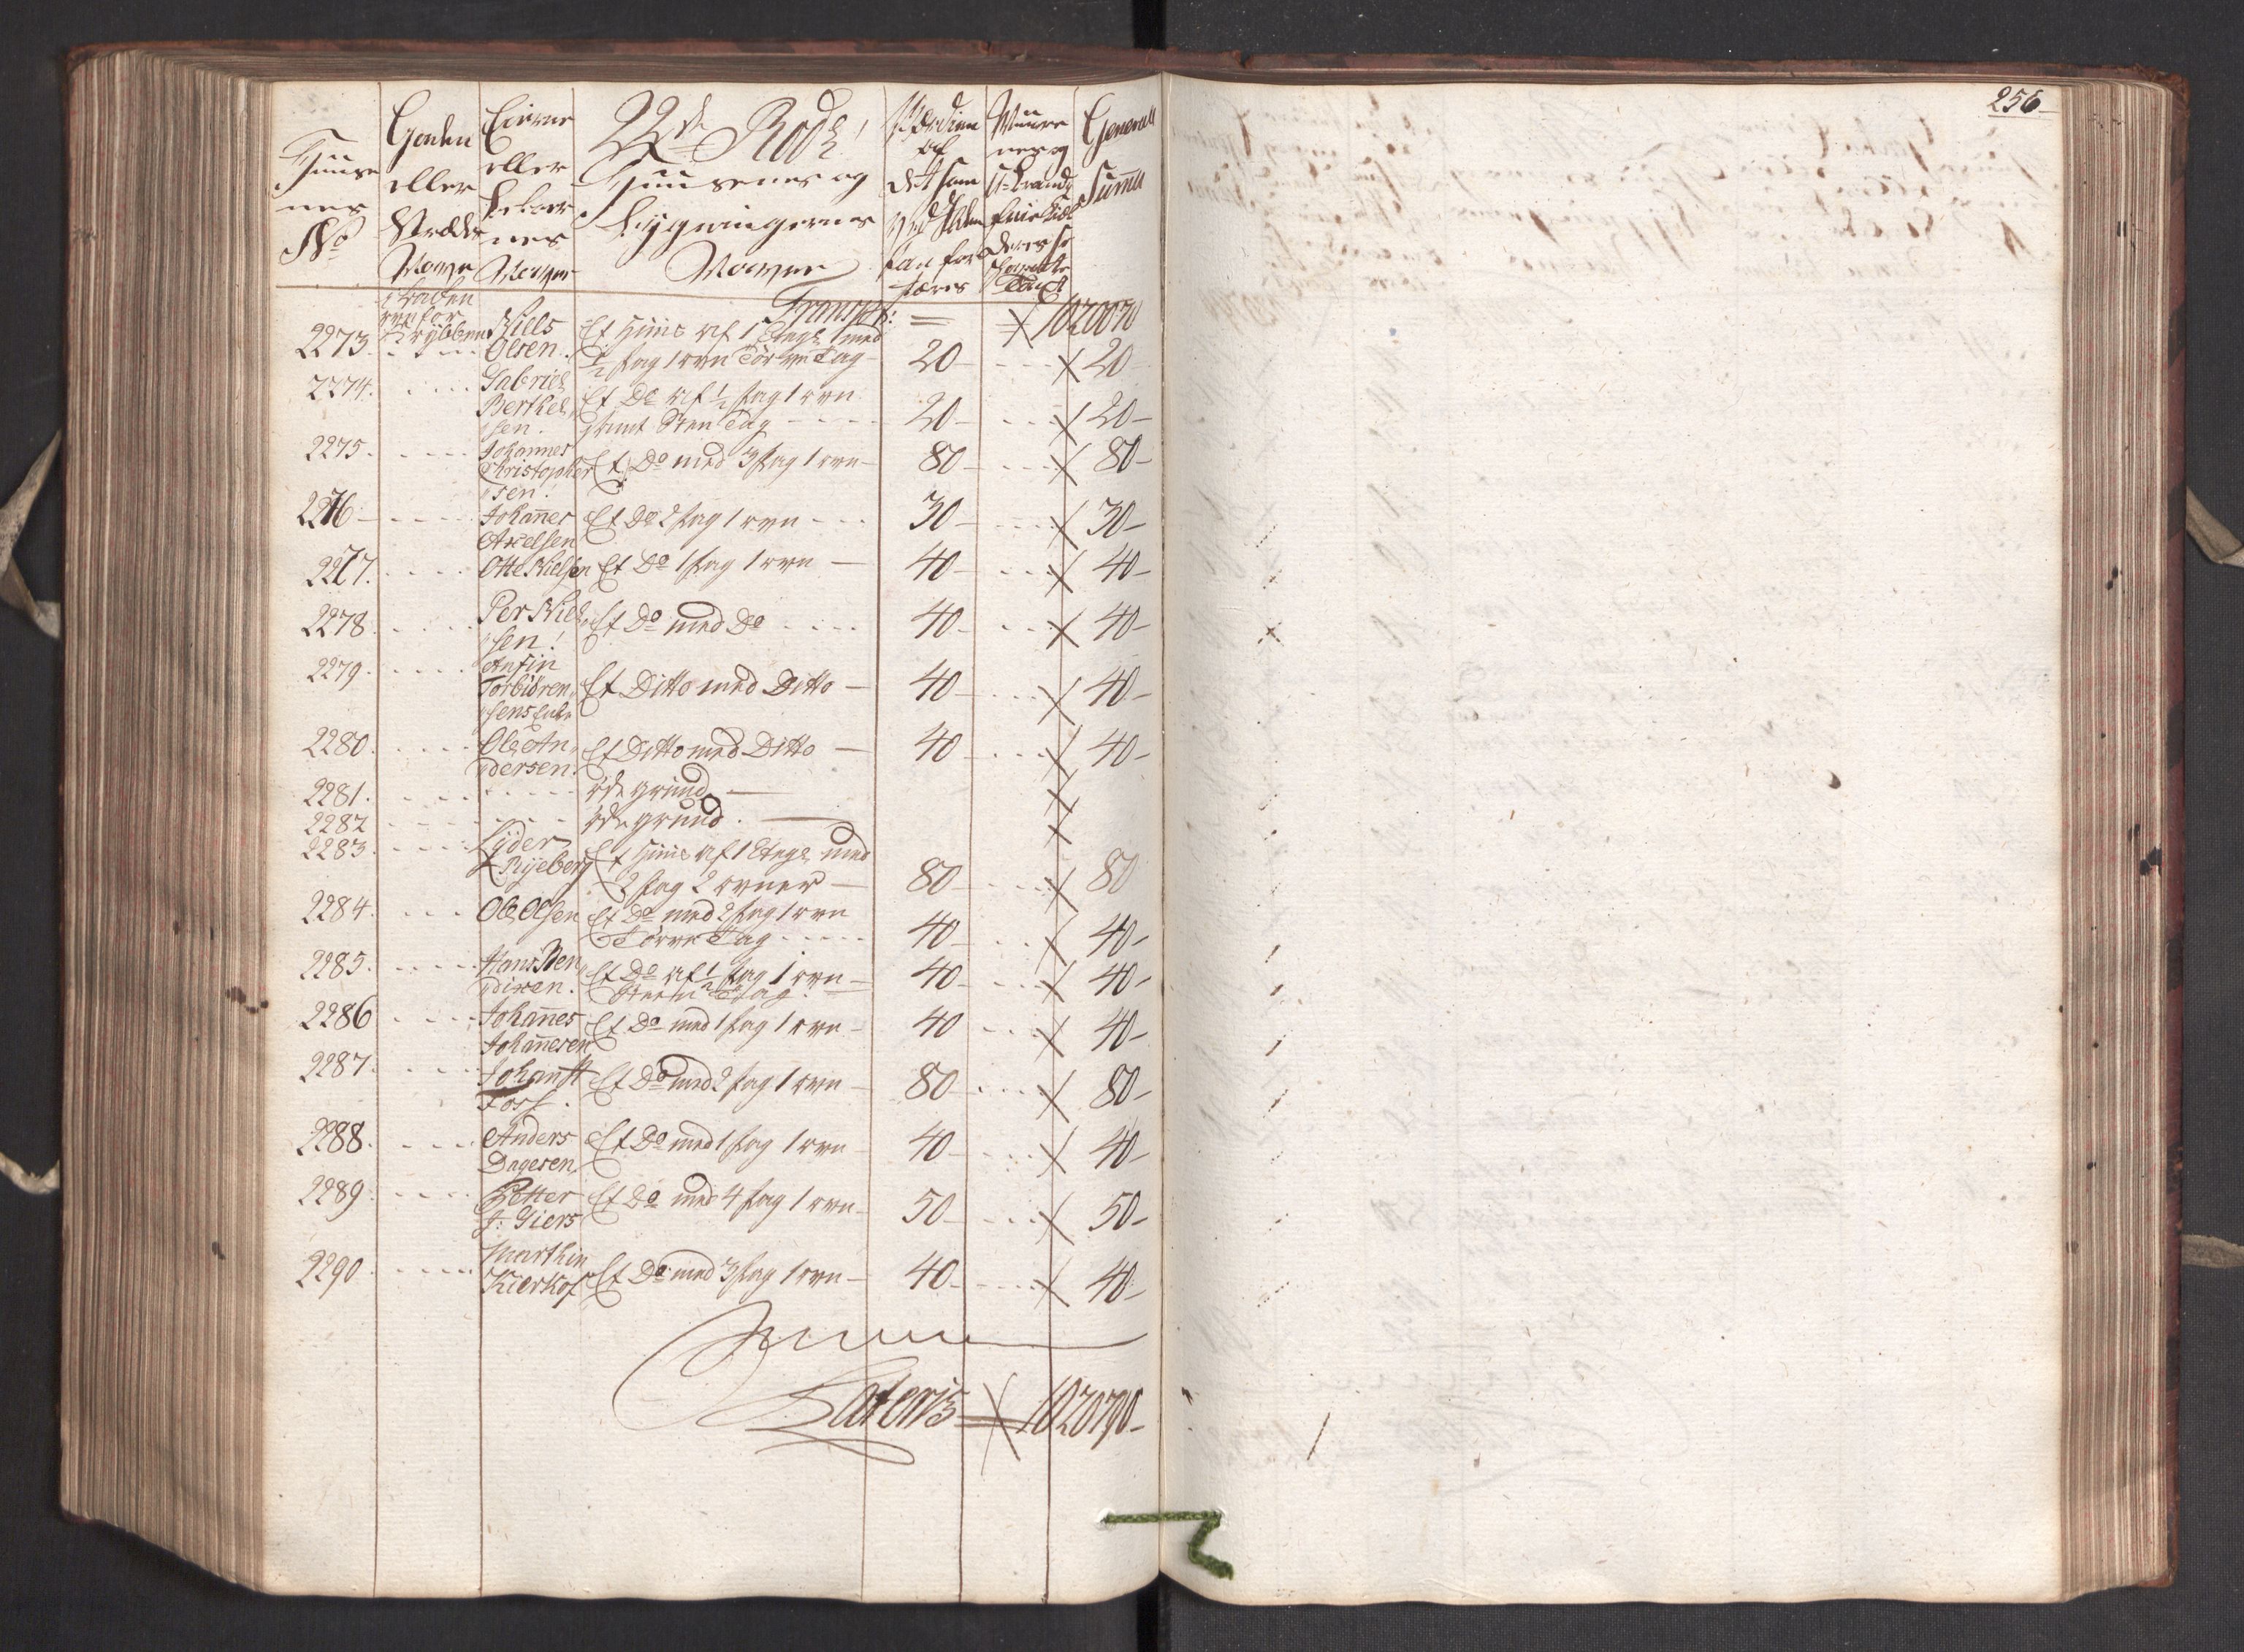 256
Huuse
nes
No
Gaden
eller
Strædets
Navne
Eierne
eller
nes
Navne
22de Rode
Huusenes og
Bygningernes
Navne
Værdien
af
det som
ved Ilden
kan for
tæres
Muure
nes og
Generall
Summa
Transport: 1020070
2273. Niels Olsen. Et Huus af 1 Etage med
1/2 fag 1 ovn Törve Tag 20 - 20 -
2274. Gabriel Berthel
sen. Et Do af 1/2 fag 1 ovn
samt Sten Tag 20 - 20 -
2275. Johannes
Christopher
sen. Et Do med 3 fag 1 ovn 80 - 80 -
2276 Johannes
Axelsen Et Do 2 fag 1 ovn 30 - 30 -
2277. Otte Nielsen Et Do 1 fag 1 ovn 40 - 40 -
2278. Per Niel
sen. Et Do med Do 40 - 40 -
2279. Anfin
Torbiören
sens Enke Et Ditto med Ditto 40 - 40 -
2280. Ole An
dersen. Et Ditto med Ditto 40 - 40 -
2281. öde grund
2282 öde grund.
2283. Lyder
Ryeberg Et Huus af 1 Etage med
2 fag 2 ovner 80 - 80
2284. Ole Olsen Et Do med 2 fag 1 ovn
Törve Tag 40 - 40 -
2285. Hans Ben
dixen. Et Do af 1/2 fag 1 ovn 40 - 40 -
2286 Johannes
Johannesen Et Do med 1 fag 1 ovn 40 - 40 -
2287. Johan
Foss. Et Do med 2 fag 1 ovn 80 - 80 -
2288. Anders
Dagesen Et Do med 1 fag 1 ovn 40 - 40 -
2289. Petter
J: Giers Et Do med 4 fag 1 ovn 50 - 50 -
2290. Marthin
Kierkof Et Do med 3 fag 1 ovn 40 - 40 -
Lateris 1020790 -